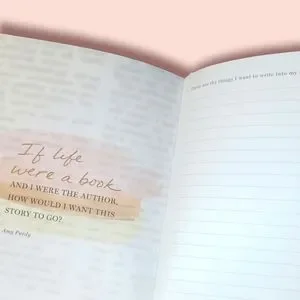 If life
were a book
AND I WERE THE AUTHOR,
HOW WOULD I WANT THIS
STORY TO GO?
Amy Purdy
These are the things I want to write into my